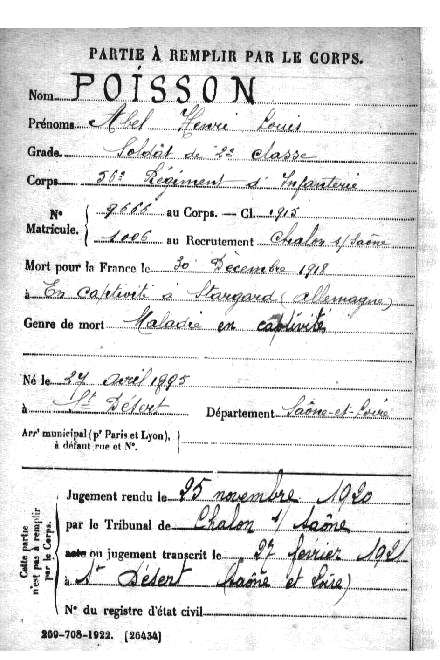 PARTIE À REMPLIR PAR LE CORPS.
Nom POISSON
Prénoms Abel Henri Louis
Grade Soldat de 2e classe
Corps 56e Régiment d'Infanterie
N° Matricule. { 9666 au Corps. — Cl. 1915
1006 au Recrutement Chalon s/ Saône
Mort pour la France le 30 Décembre 1918
à En captivité à Stargard (Allemagne)
Genre de mort Maladie en captivité
Né le 27 avril 1895
à St Désert Département Saône-et-Loire
Arrt municipal (pr Paris et Lyon), à défaut rue et N°.
Cette partie n'est pas à remplir par le Corps.
Jugement rendu le 25 novembre 1920
par le Tribunal de Chalon s/ Saône
acte ou jugement transcrit le 27 février 1921
à St Désert Saône et Loire)
N° du registre d'état civil
209-708-1922. [26434]